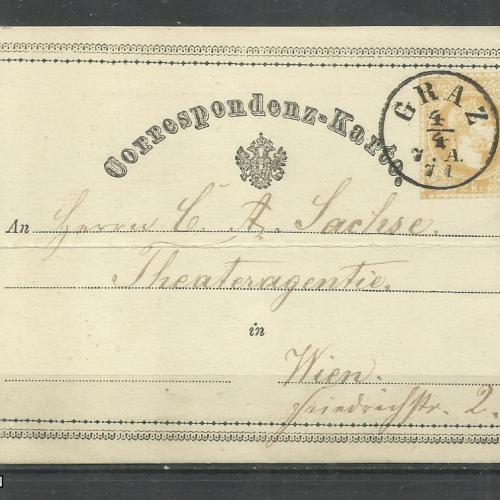 Correspondenz-Karte.
GRAZ
4
4
7. A.
71
An Herrn C. A. Sachse.
Theateragentie.
in
Wien.
Friedrichstr. 2.